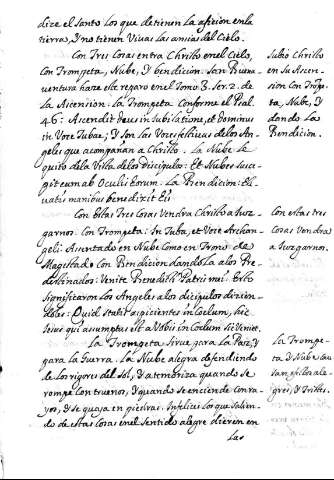 dize el Santo los que detienen la aficion en la
tierra, Y no tienen Vivas las ansias del Cielo.
Con Tres Cosas entra Christo en el Cielo,
con Trompeta, Nube, Y bendicion. San Buena
ventura haze este reparo en el Tomo 3. Ser. 2. de
la Ascension. la Trompeta Conforme el Psal.
46: Ascendit Deus in Jubilatione, et Dominus
in Voce Tubae; Y Son las Voces festivas de los An-
geles que acompañan a Christo. la Nube le
quito de la Vista de los Discipulos: Et Nubes susce
pit eum ab Oculis Eorum. La Bendicion: Ele
vatis manibus benedixit Eis
Con estas Tres Cosas Vendra Christo a Juzg-
garnos. Con Trompeta: In Tuba, et Voce Archan-
geli. Asentado en Nube Como en Trono de
Magestad. Con Bendicion dandola a los Pre-
destinados: Venite Benedicti Patris mei. Esto
significaron los Angeles a los dicipulos dizien-
doles: Quid Statis aspicientes in Coelum, hic
Jesus qui assumptus est a Vobis in Coelum sic Veniet.
La Trompeta Sirve para la Paz, Y
para la Guerra. La Nube alegra defendiendo
de los rigores del Sol, Y atemoriza quando se
rompe con truenos, Y quando se enciende con ra-
yos, Y se quaja en piedras. Infelices los que Salien-
do de estas Cosas en el Sentido alegre dieren en
las
Subio Christo
en Su Ascen-
sion con Trompe-
ta, Nube, Y
dando la
Bendicion.
Con estas tres
Cosas Vendra
a Juzgarnos.
La Trompe-
ta Y Nube Cau
san efectos ale-
gres, Y Tristes.